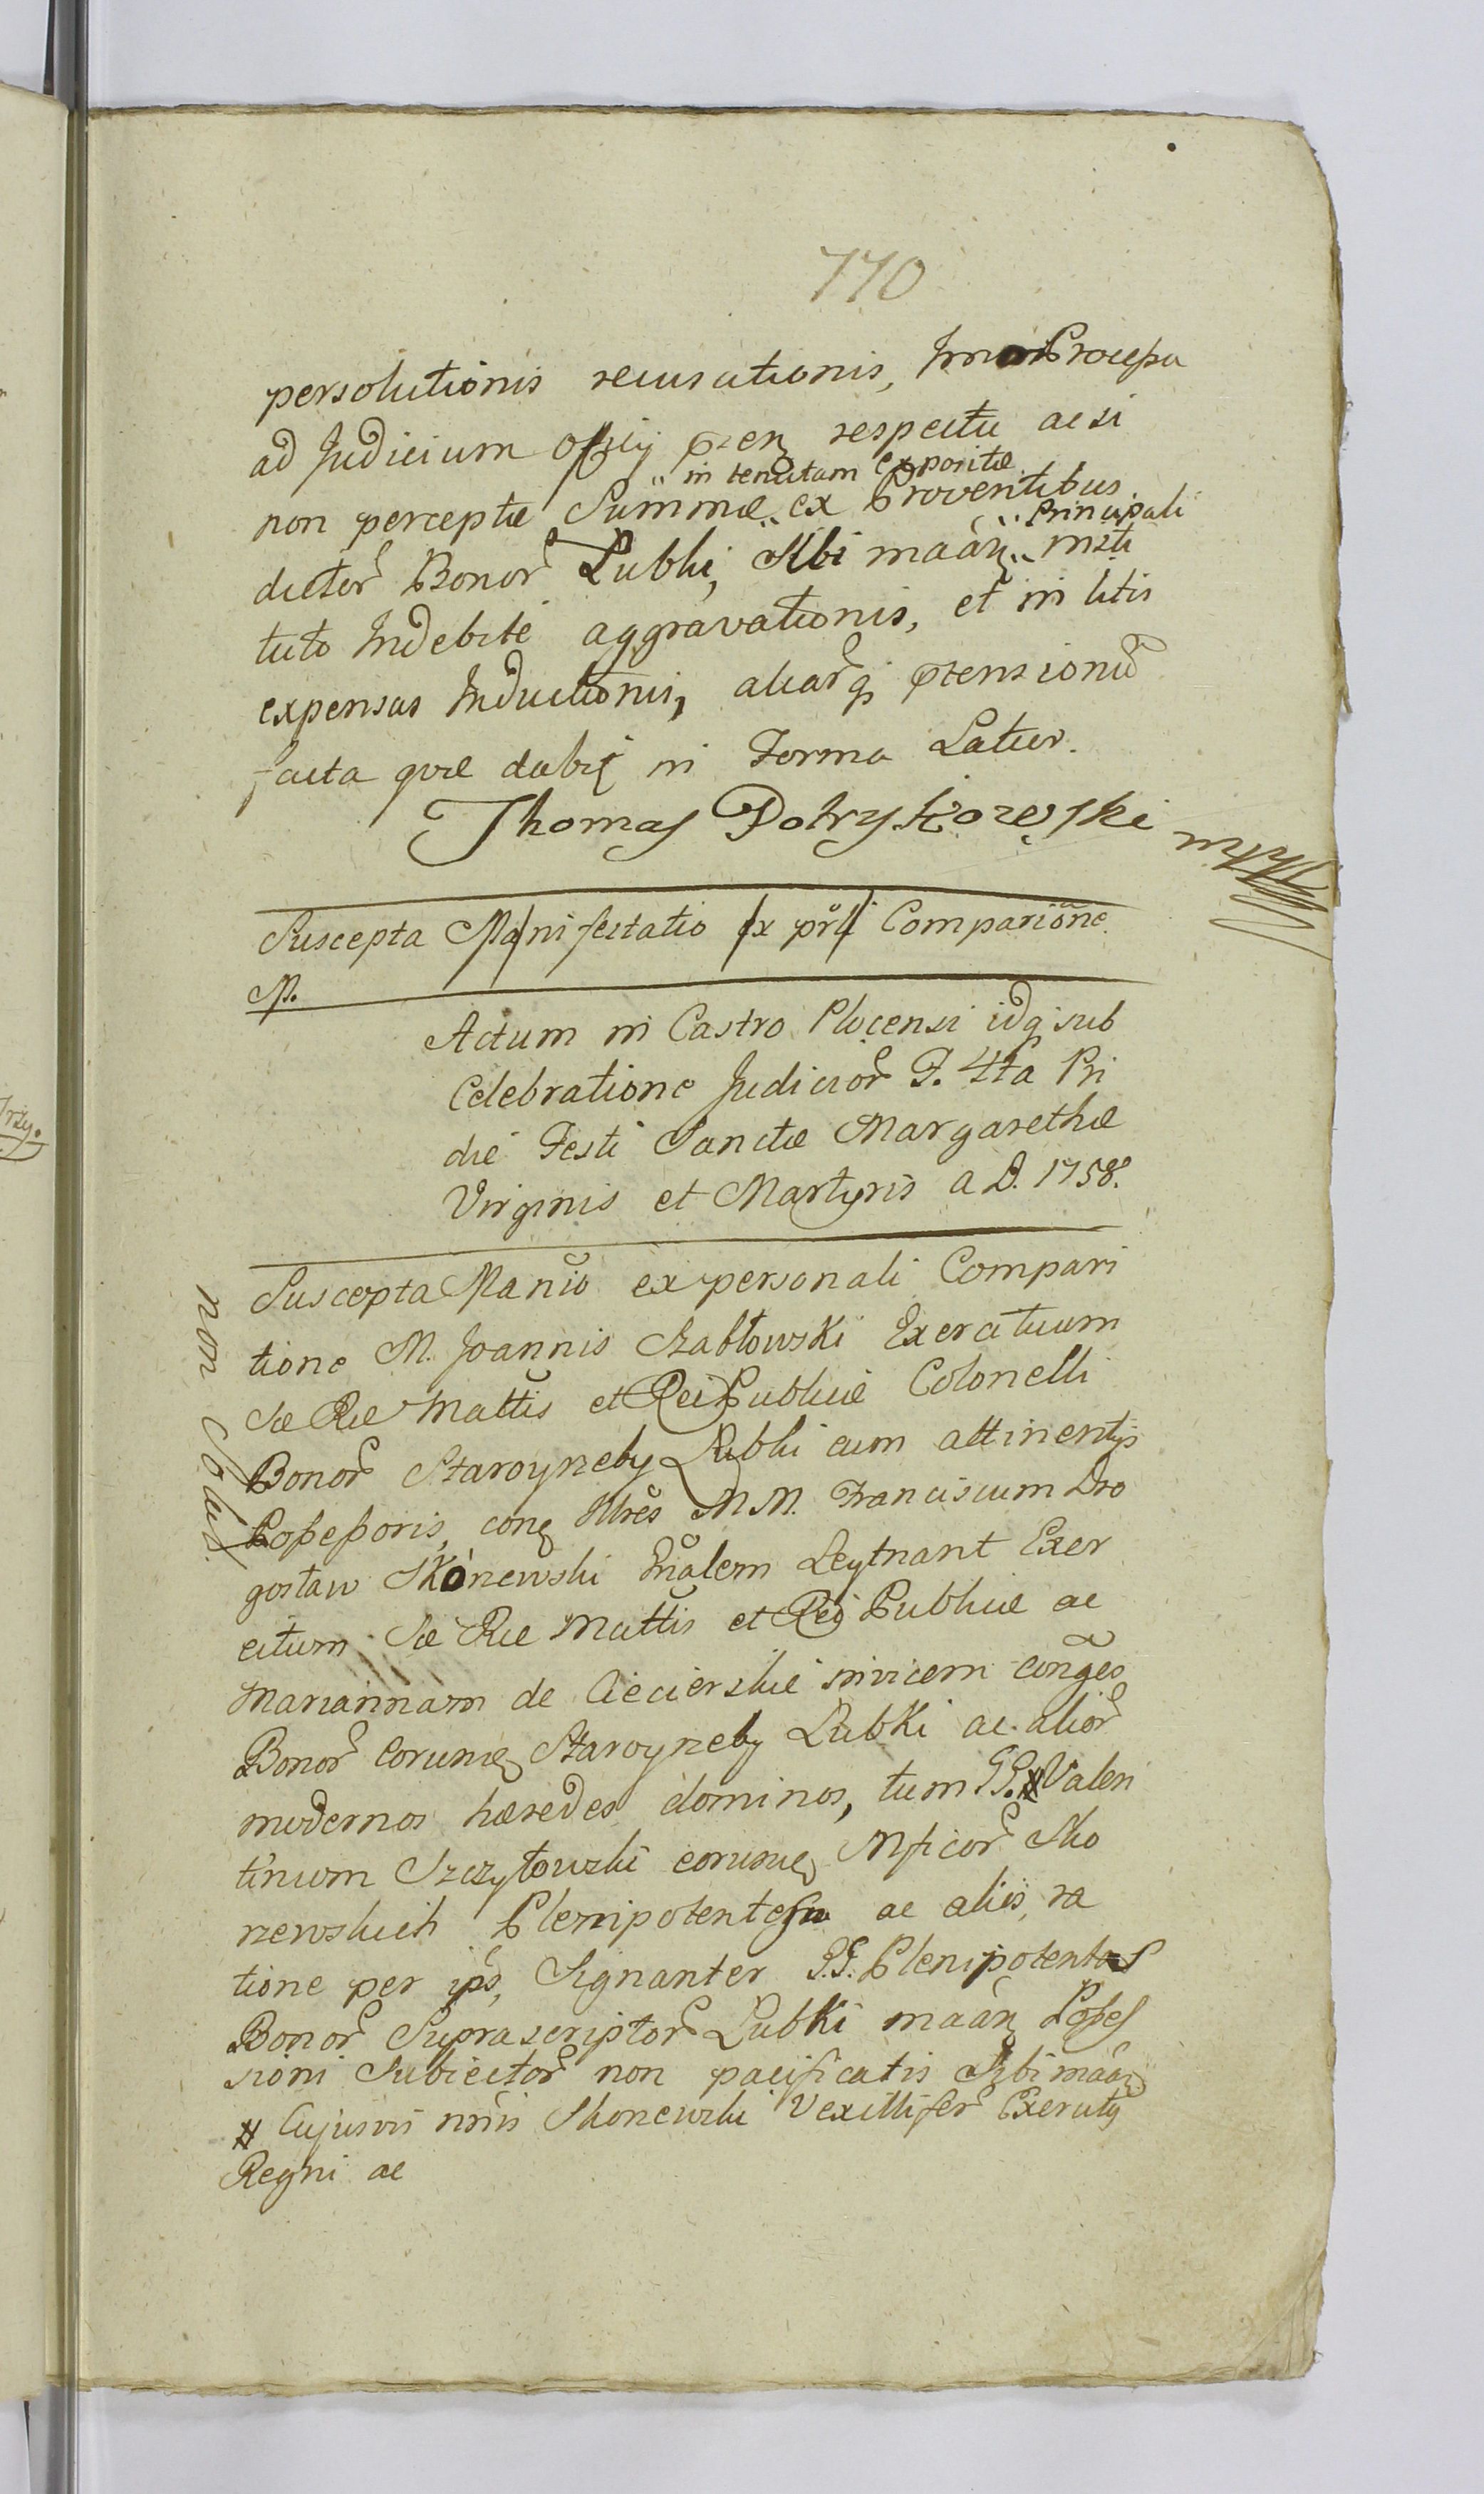 770
persolutionis recusationis, Imo Processu
ad Judicium officÿ respectu ac si
in tenutam expositæ
non perceptæ Summæ ex Proventibus
Principali
dictor Bonor Lubki, Sibi maãn insti
tuto Indebite aggravationis, et in litis
expensas Inductionis, aliarq ptensionu
facta quæ dabit in Forma Latior.
Thomas Potrykowski mpp
Suscepta Manifestatio ex prli Comparione
M.
Actum in Castro Plocensi idq sub
Celebratione Judicior F. 4ta Pri
die Festi Sanctæ Margarethæ
Virginis et Martyris a D. 1758.
Suscepta Manio ex personali Compari
tione M. Joannis Szabłowski Exercituum
Sæ Ræ Mattis et Rei Publicæ Colonelli
Bonor Staroyzeby Lubki cum attinentÿs
Possessoris, con Illres MM. Franciscum Dro
gosław Skorzewski Gnalem Leytnant Exer
cituum Sæ Ræ Mattis et Rei Publicæ ac
Mariannam de Ciecierskie invicem conges
Bonor eorum Staroyzeby Lubki ac alior
modernos hæredes dominos, tum GG. # Valen
tinum Szczytowski eorum Mficor Sko
rzewskich Plenipotentem ac alios, ra
tione per ipsos, Signanter GG. Plenipotentes
Bonor Suprascriptor Lubki maãn Posses
sioni Subiector non pacificatis Sibi maãn
# Cujusvis nõis Skorzewski Vexillifer Exercitÿ
Regni ac
non Solut.